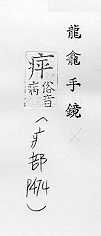 龍龕手鏡
㾏
俗音
病
(疒部
P474)